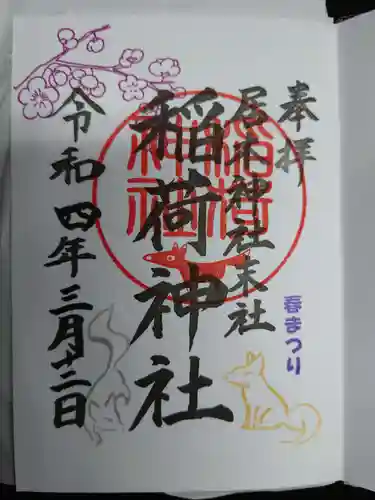 奉拝
居木神社末社
春まつり
稲荷神社
稲荷神社
令和四年三月十二日